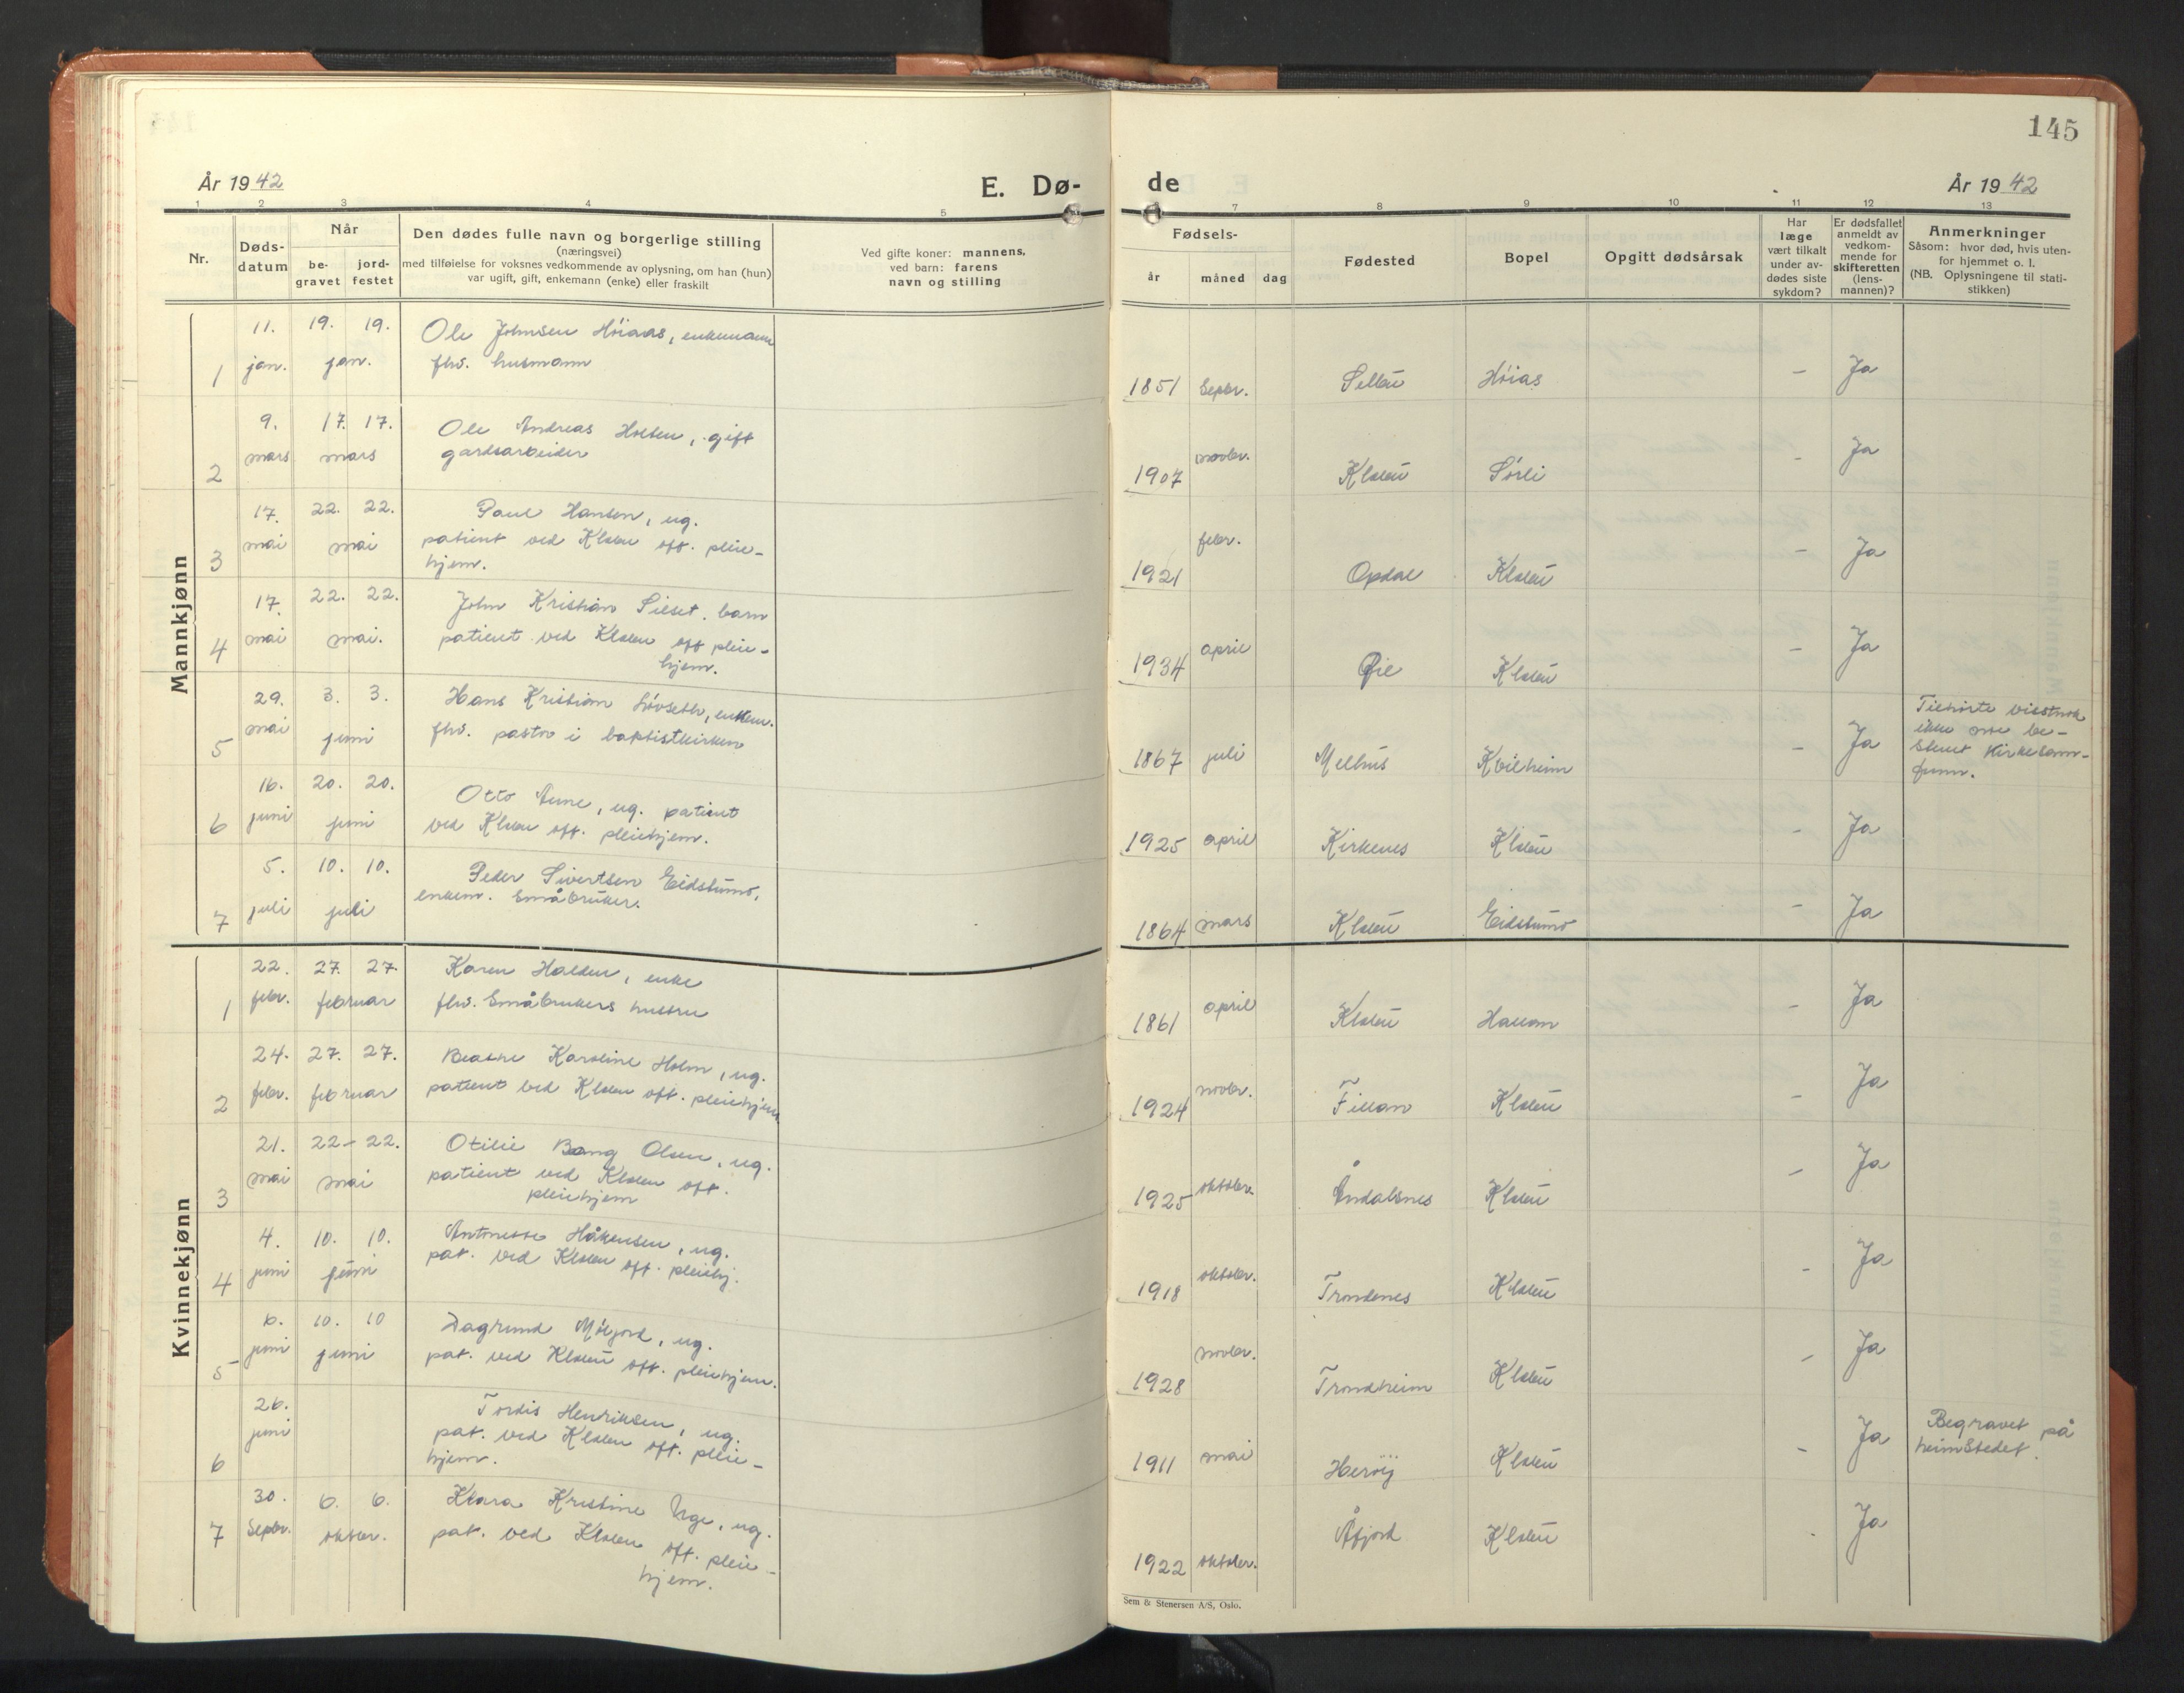 145
År 1942
E. Dø-
de
År 1942
1 2 3 4 5 6 7 8 9 10 11 12 13
Nr.
Døds-
datum
Når
be-
gravet
jord-
festet
Den dødes fulle navn og borgerlige stilling
(næringsvei)
med tilføielse for voksnes vedkommende av oplysning, om han (hun)
var ugift, gift, enkemann (enke) eller fraskilt
Ved gifte koner: mannens,
ved barn: farens
navn og stilling
Fødsels-
år måned dag
Fødested
Bopel
Opgitt dødsårsak
Har
læge
vært tilkalt
under av-
dødes siste
sykdom?
Er dødsfallet
anmeldt av
vedkom-
mende for
skifteretten
(lens-
mannen)?
Anmerkninger
Såsom: hvor død, hvis uten-
for hjemmet o. l.
(NB. Oplysningene til stati-
stikken)
Mannkjønn
11. 19. 19. Ole Johnsen Höiaas, enkemann
1 jan. jan. fhv. husmann
1851 Septbr. Selbu Höias - Ja
9. 17. 17. Ole Andreas Holten, gift
2 mars mars gardsarbeider
1907 novbr. Klæbu Sörli - Ja
17. 22. 22. Paul Hansen, ug.
3 mai mai patient ved Klæbu off. pleie-
hjem.
1921 febr. Opdal Klæbu - Ja
17. 22. 22. John Kristian Silset. barn
4 mai mai. patient ved Klæbu off pleie-
hjem.
1934 april Øie Klæbu - Ja
29. 3. 3. Hans Kristian Lövseth, enkem.
5 mai juni fhv. pastor i baptistkirken
1867 juli Melhus Kvilheim - Ja
Tilhörte visstnok
ikke noe be-
stemt kirkesam-
funn.
16. 20. 20. Otto Aune, ug. patient
6 juni juni ved Klæbu off. pleiehjem.
1925 april Kirkenes Klæbu - Ja
5. 10. 10. Peder Sivertsen Eidstumo,
7 juli juli enkem. Småbruker.
1864 mars Klæbu Eidstumo - Ja
Kvinnekjønn
22. 27. 27. Karen Halden, enke
1 febr. februar fhv. Småbrukers hustru
1861 april Klæbu - Ja
24. 27. 27. Beathe Karoline Holm, ug.
2 febr. februar patient ved Klæbu off. pleiehjem
1924 novbr. Fillan Klæbu - Ja
21. 22- 22. Otilie Bang Olsen, ug.
3 mai mai patient ved Klæbu off.
pleiehjem
1925 oktober. Åndalsnes Klæbu - Ja
4. 10. 10. Antonette Håkensen, ug.
4 juni juni pat. ved Klæbu off. pleiehj.
1918 oktober. Trondenes Klæbu - Ja
6. 10. 10 Dagrund ug.
5 juni juni pat. ved Klæbu off. pleiehjem.
1928 novbr. Trondheim Klæbu - Ja
26. Tordis Henriksen, ug.
juni pat. ved Klæbu off. pleie-
6 hjem.
1911 mai Heröy Klæbu - Ja
Begravet på
heimstedet.
30. 6. 6. Klara Kristine ug.
7 Septbr. oktbr. pat. ved Klæbu off. pleie-
hjem.
1922 oktober. Åfjord Klæbu - Ja
Sem & Stenersen A/S, Oslo.